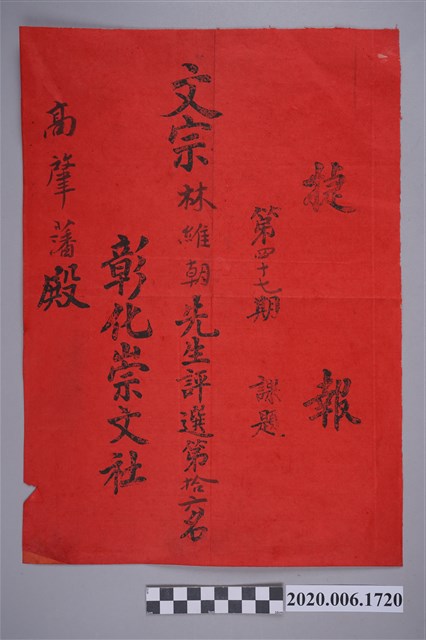 捷報
第四十七期 課題
文宗林維朝先生評選第拾六名
彰化崇文社
高肇藩殿
2020.006.1720